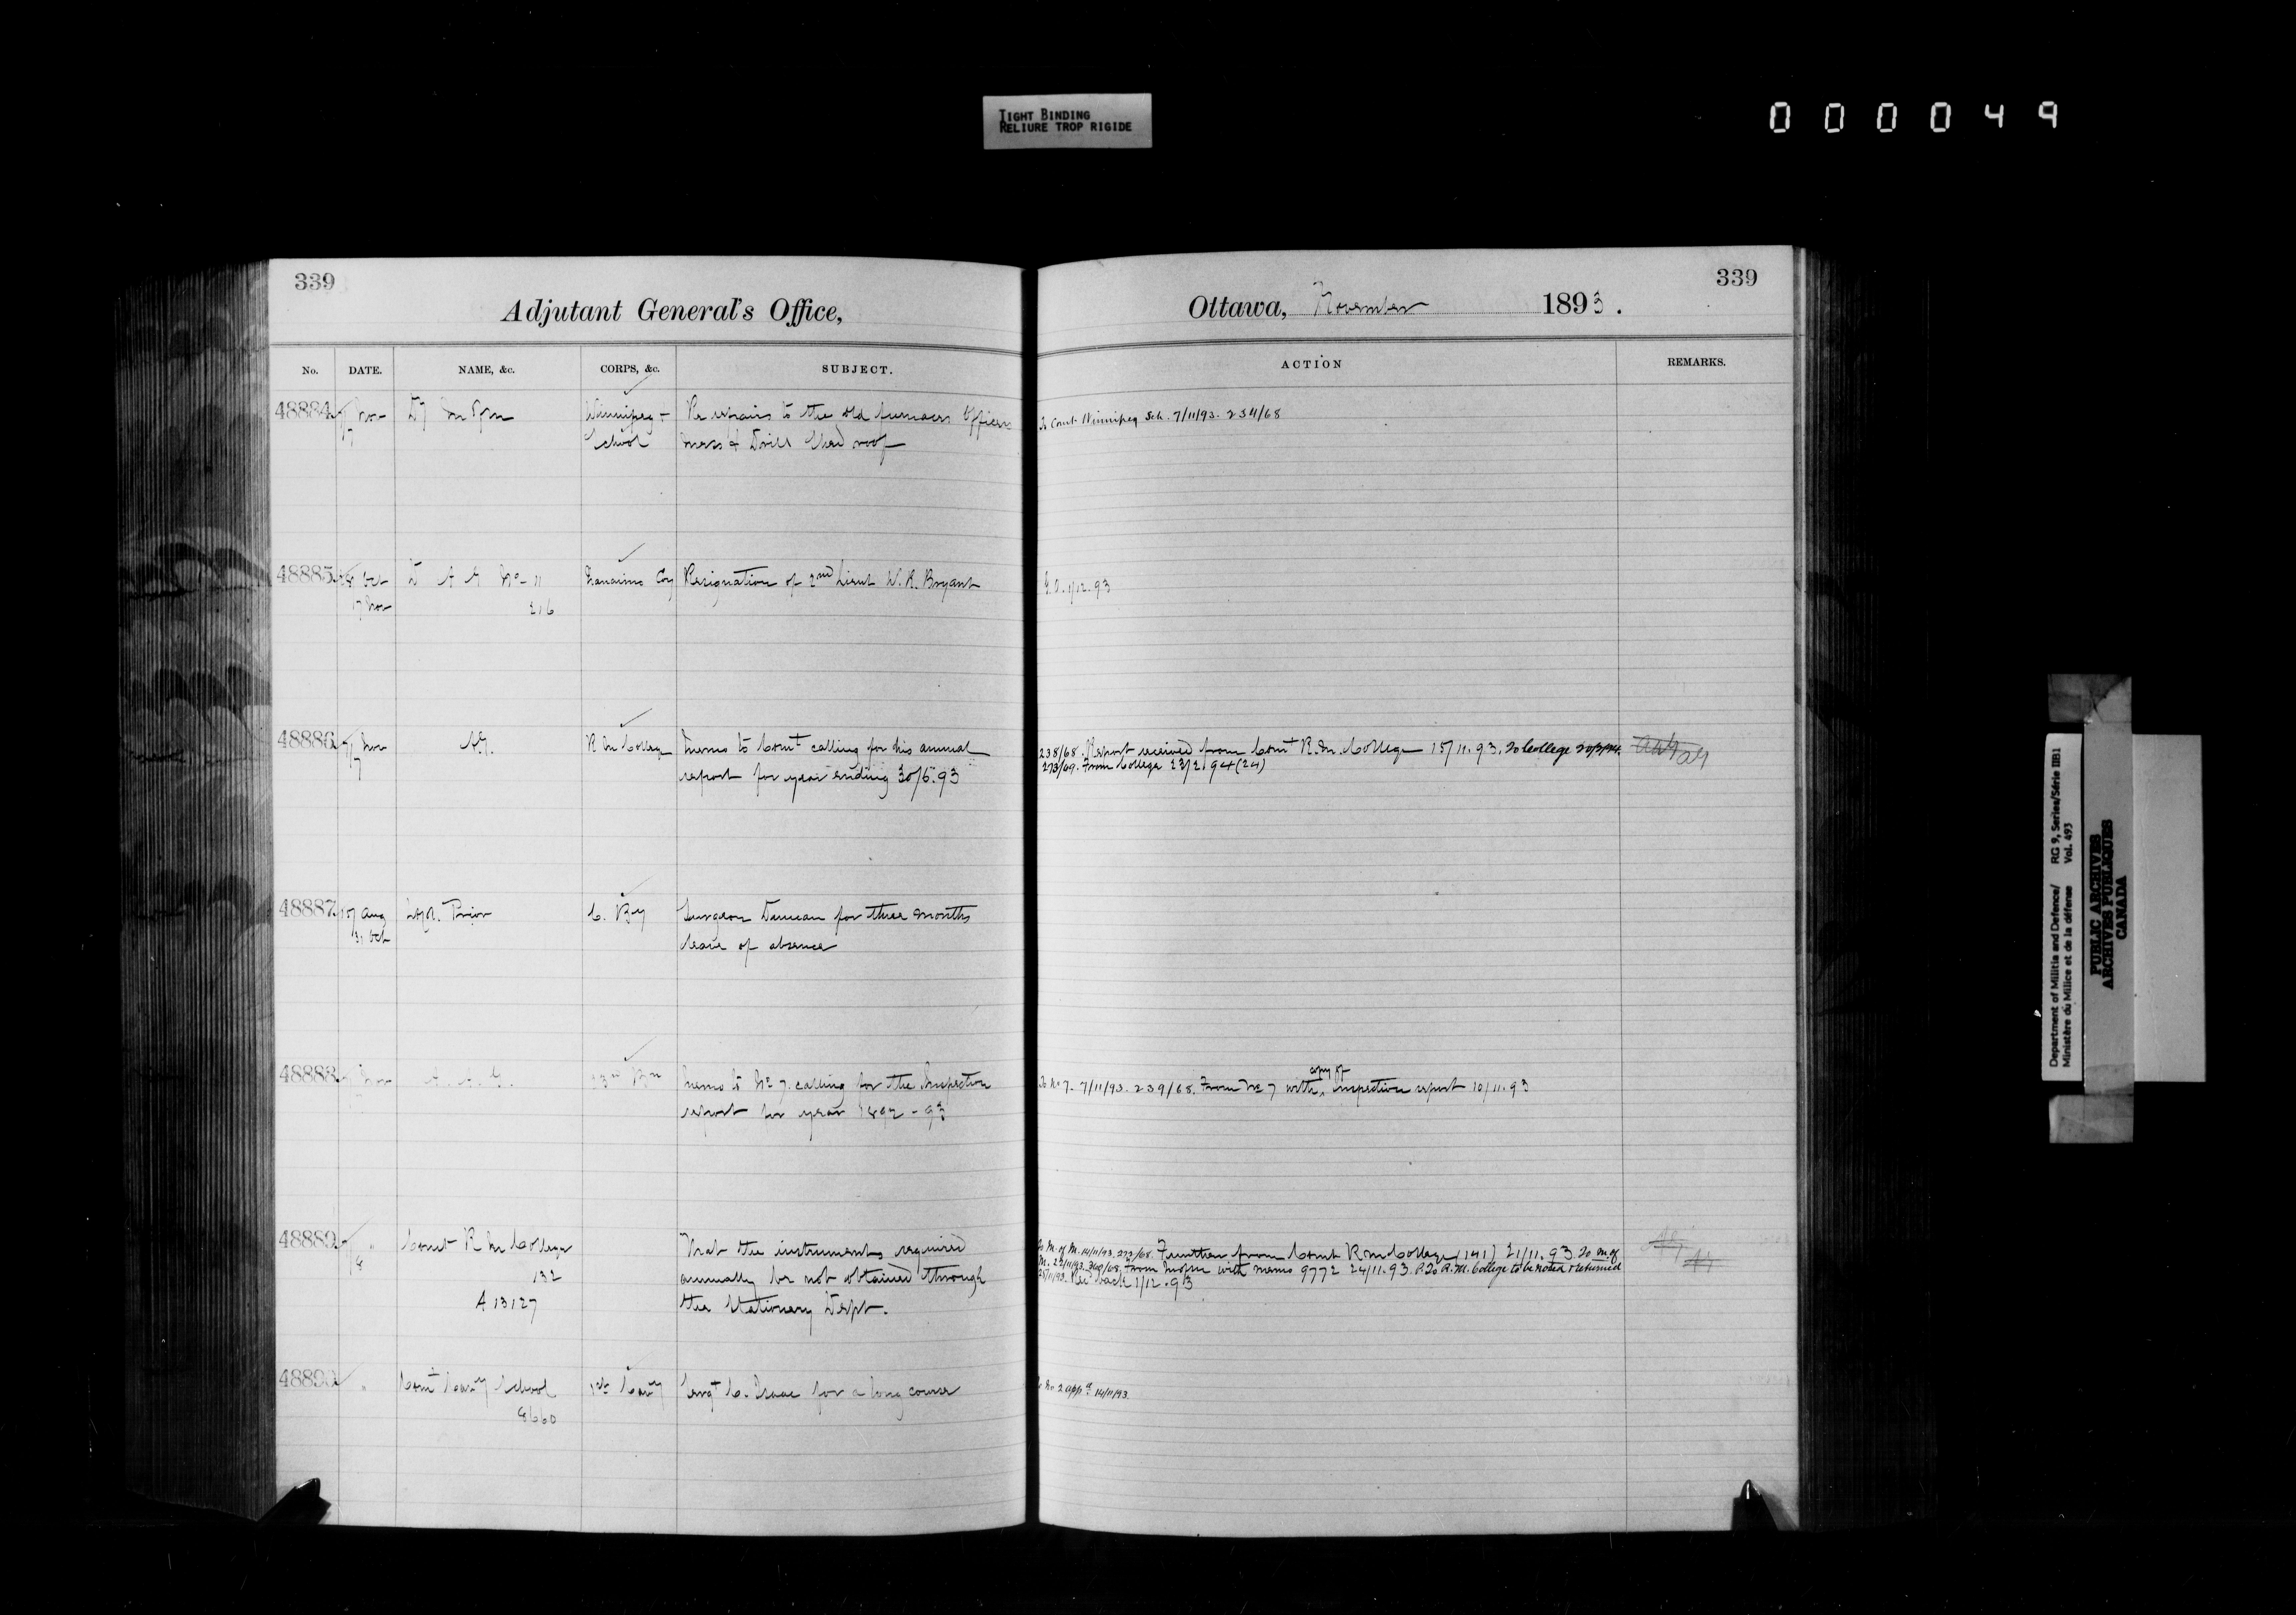 TIGHT BINDING
RELIURE TROP RIGIDE
000049
339
Adjutant General's Office,
No. DATE. NAME, &c. CORPS, &c. SUBJECT.
48884 7 Nov Winnipeg Re repairs to the old furnaces Officers
7 School mess & Drill Shed roof
48885 Oct D A G No 11 Nanaimo Coy Resignation of 2nd Lieut W. R. Bryant
7 Nov 216
48886 7 Nov AG. R M College Memo to Comt calling for his annual
7 report for year ending 30/6.93
48887 Aug Prior C. By Surgeon Duncan for three months
31 Oct leave of absence
48888 Nov A. A. G. Bn Memo to No 7. calling for the Inspection
report for year 1892-93
48889 7 " Comt R M College That the instruments required
8 132 annually be not obtained through
A 13127 the Stationery Dept.
48890 " Comt Cavy School 1st Cavy Sergt C. Isaac for a long course
8660
339
Ottawa, November 1893.
ACTION REMARKS.
To Comt Winnipeg Sch. 7/11/93. 234/68
G.O. 1/12.93
238/68. Report received from Comt R.M. College 15/11.93. To College AG
273/69. From College 23/2.94 (24)
copy of
To No 7- 7/11/93. 239/68. From No 7 with inspection report 10/11.93
To M. of M. 14/11/93. 272/68. Further from Comt R M College (141) 21/11.93. To M. of
M. 22/11/93. 300/68. From with memo 9772 24/11.93. To R.M. College to be noted & returned
25/11/93. Rec back 1/12.93
To No 2 appd 14/11/93.
Department of Militia and Defence/ RG 9, Series/Série IIB1
Ministère du Milice et de la défense Vol. 493
PUBLIC ARCHIVES
ARCHIVES PUBLIQUES
CANADA